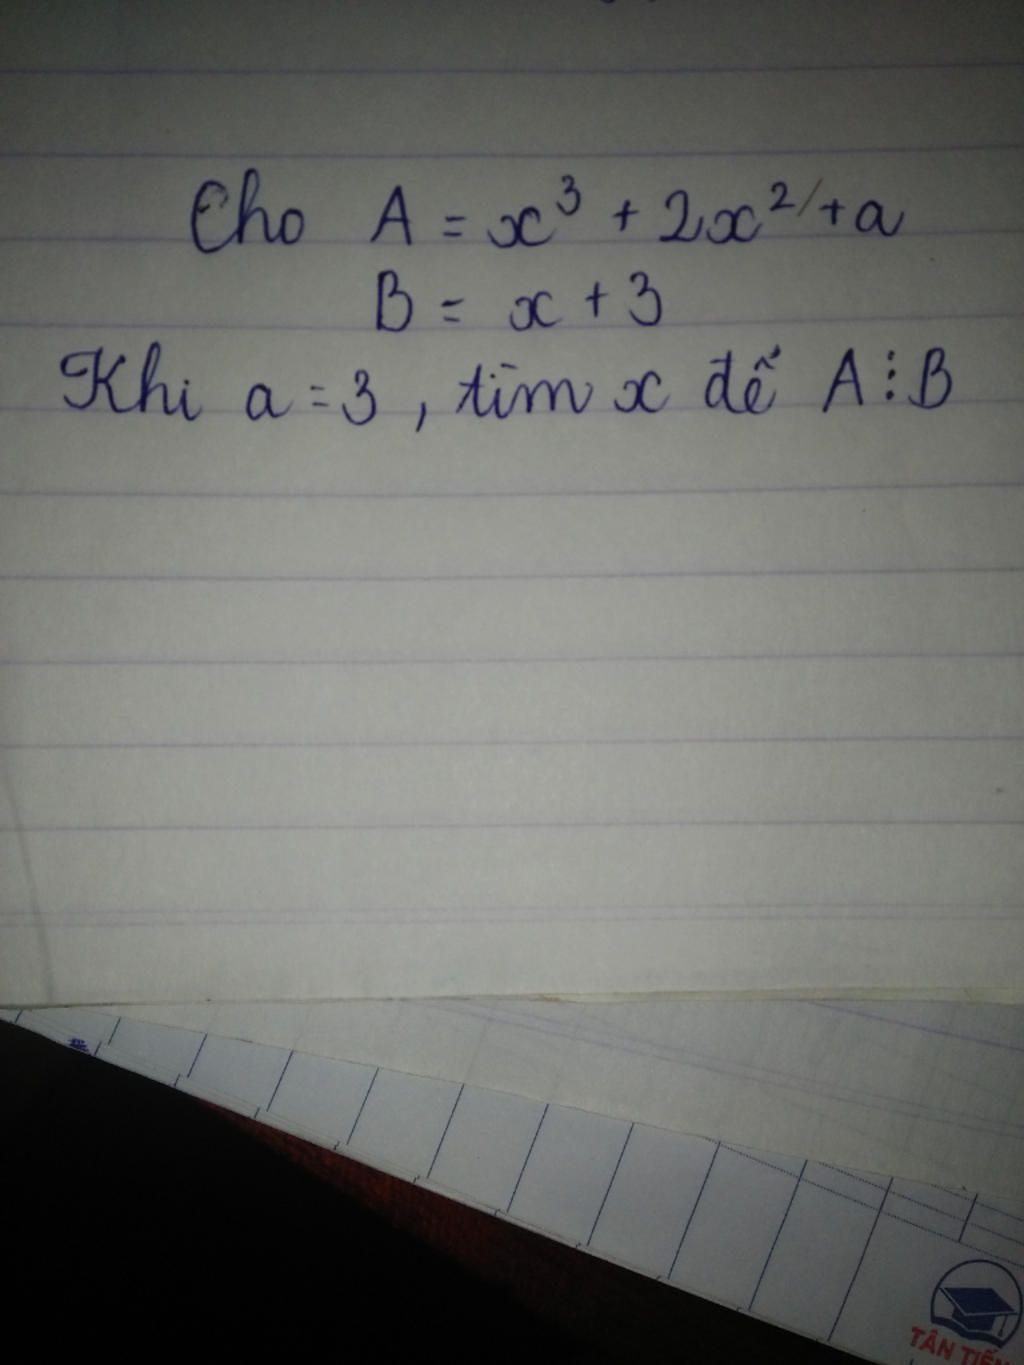 Cho A = x³ + 2x² + a
B = x + 3
Khi a = 3, tìm x để A ⋮ B
TÂN TIẾN